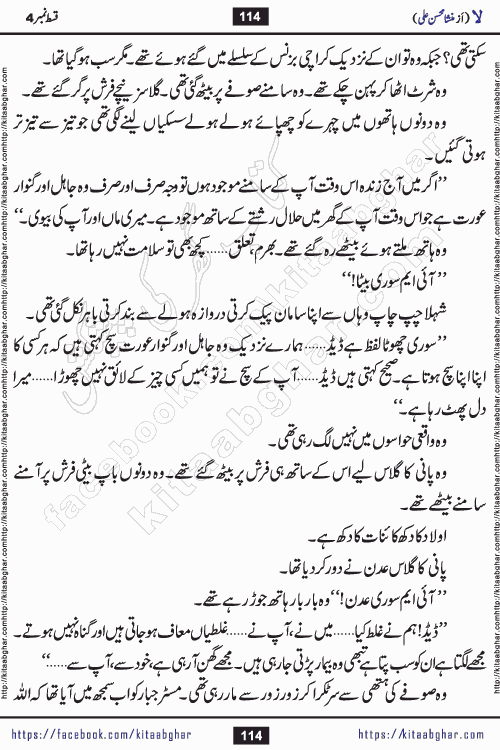 لا (از منشا محسن علی) 114 قسط نمبر 4
سکتی تھی؟ جبکہ وہ تو ان کے نزدیک کراچی بزنس کے سلسلے میں گئے ہوئے تھے۔ مگر سب ہو گیا تھا۔
وہ شرٹ اٹھا کر پہن چکے تھے۔ وہ سامنے صوفے پر بیٹھ گئی تھی۔ گلاسز نیچے فرش پر گر گئے تھے۔
وہ دونوں ہاتھوں میں چہرے کو چھپائے ہولے ہولے سسکیاں لینے لگی تھی جو تیز سے تیز تر
ہوتی گئیں۔
”اگر میں آج زندہ اس وقت آپ کے سامنے موجود ہوں تو وجہ صرف اور صرف وہ جاہل اور گنوار
عورت ہے جو اس وقت آپ کے گھر میں حلال رشتے کے ساتھ موجود ہے۔ میری ماں اور آپ کی بیوی۔“
وہ ہاتھ ملتے ہوئے بیٹھے رہ گئے تھے۔ بھرم، تعلق...... کچھ بھی تو سلامت نہیں رہا تھا۔
”آئی ایم سوری بیٹا!“
شہلا چپ چاپ وہاں سے اپنا سامان پیک کرتی دروازہ ہولے سے بند کرتی باہر نکل گئی تھی۔
”سوری چھوٹا لفظ ہے ڈیڈ...... ہمارے نزدیک وہ جاہل اور گنوار عورت سچ کہتی ہیں کہ ہر کسی کا
اپنا اپنا سچ ہوتا ہے۔ صحیح کہتی ہیں ڈیڈ...... آپ کے سچ نے تو ہمیں کسی چیز کے لائق نہیں چھوڑا...... میرا
دل پھٹ رہا ہے۔“
وہ واقعی حواسوں میں نہیں لگ رہی تھی۔
وہ پانی کا گلاس لیے اس کے ساتھ ہی فرش پر بیٹھ گئے تھے۔ وہ دونوں باپ بیٹی فرش پر آمنے
سامنے بیٹھے تھے۔
اولاد کا دکھ کائنات کا دکھ ہے۔
پانی کا گلاس عدن نے دور کر دیا تھا۔
”آئی ایم سوری عدن!“ وہ بار بار ہاتھ جوڑ رہے تھے۔
”ڈیڈ! ہم نے غلط کیا...... میں نے، آپ نے...... غلطیاں معاف ہو جاتی ہیں اور گناہ نہیں ہوتے۔
مجھے لگتا ہے ان کو سب پتا ہے تبھی وہ بیمار پڑتی جا رہی ہیں۔ مجھے گھن آ رہی ہے، خود سے، آپ سے......“
وہ صوفے کی ہتھی سے سر ٹکرا کر زور زور سے مار رہی تھی۔ مسٹر جبار کو اب سمجھ میں آیا تھا کہ اللہ
https://facebook.com/kitaabghar 114 https://kitaabghar.com